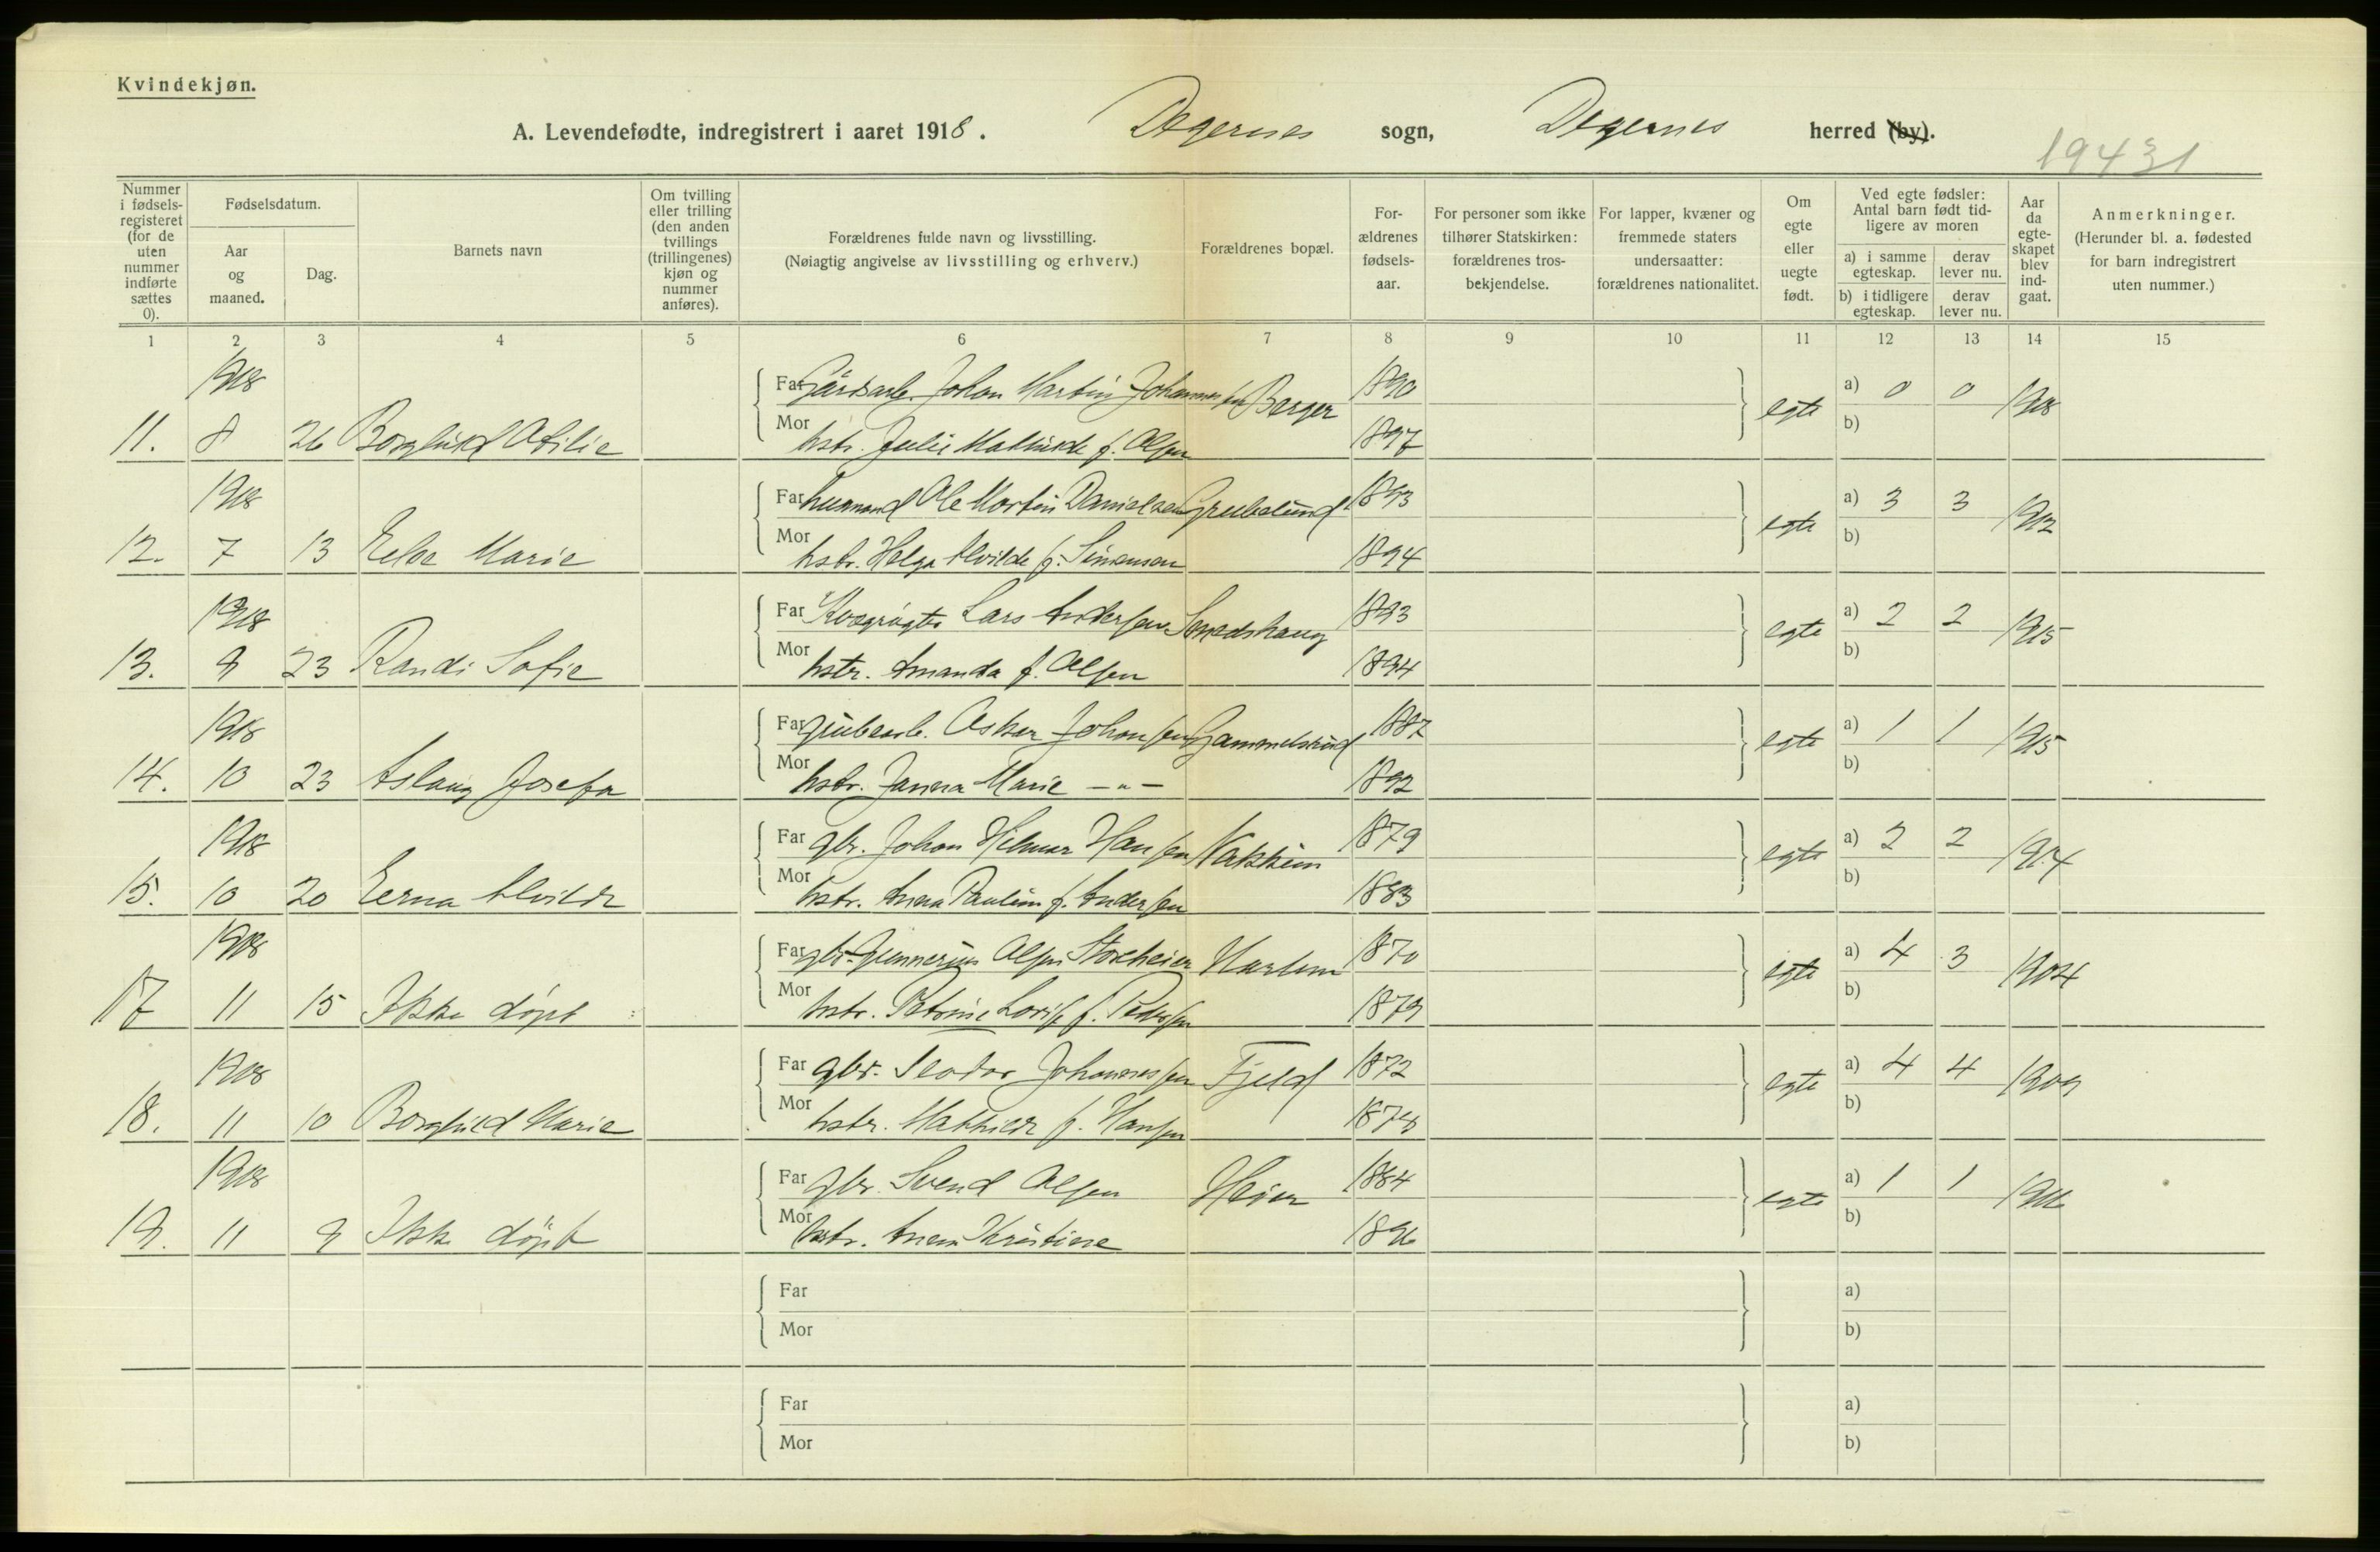 Kvindekjøn.
A. Levendefødte, indregistrert i aaret 1918. Degernes sogn, Degernes herred (by).
19431
Nummer i fødselsregisteret (for de uten nummer indførte sættes 0).
Fødselsdatum.
Aar og maaned.
Dag.
Barnets navn
Om tvilling eller trilling (den anden tvillings (trillingenes) kjøn og nummer anføres).
Forældrenes fulde navn og livsstilling.
(Nøiagtig angivelse av livsstilling og erhverv.)
Forældrenes bopæl.
For-ældrenes fødsels-aar.
For personer som ikke tilhører Statskirken: forældrenes tros-bekjendelse.
For lapper, kvæner og fremmede staters undersaatter: forældrenes nationalitet.
Om egte eller uegte født.
Ved egte fødsler: Antal barn født tid-ligere av moren
a) i samme egteskap.
derav lever nu.
b) i tidligere egteskap.
derav lever nu.
Aar da egte-skapet blev ind-gaat.
Anmerkninger.
(Herunder bl. a. fødested for barn indregistrert uten nummer.)
1 2 3 4 5 6 7 8 9 10 11 12 13 14 15
1918 Far Gårdsarb. Johan Martin Johannessen Berger 1890 egte a) 0 0 1918
11. 8 26 Borghild Otilie Mor hstr. Julie Mathilde f. Olsen 1897 b)
1918 Far husmand Ole Martin Danielsen Grubelund 1893 egte a) 3 3 1912
12. 7 13 Else Marie Mor hstr. Helga Alvilde f. Simensen 1894 b)
1918 Far Lars Andersen Smedshaug 1893 egte a) 2 2 1915
13. 9 23 Randi Sofie Mor hstr. Amanda f. Olsen 1894 b)
1918 Far grubearb. Oskar Johansen Gammelsrud 1887 egte a) 1 1 1915
14. 10 23 Aslaug Josefa Mor hstr. Janna Marie — " — 1892 b)
1918 Far gbr. Johan Hilmar Hansen Nakkim 1879 egte a) 2 2 1914
15. 10 20 Erna Alvilde Mor hstr. Anna Pauline f. Andersen 1883 b)
1918 Far gbr. Gunnerius Olsen Storeheier Harlem 1870 egte a) 4 3 1904
17 11 15 Ikke døpt Mor hstr. Petrine Lovise f. Pedersen 1879 b)
1918 Far gbr. Teodor Johannessen Fjeld 1872 egte a) 4 4 1909
18. 11 10 Borghild Marie Mor hstr. Mathilde f. Hansen b)
1918 Far gbr. Svend Olsen Heier 1884 egte a) 1 1 1916
19. 11 9 Ikke døpt Mor hstr. Anna Kristine 1896 b)
Far a)
Mor b)
Far a)
Mor b)